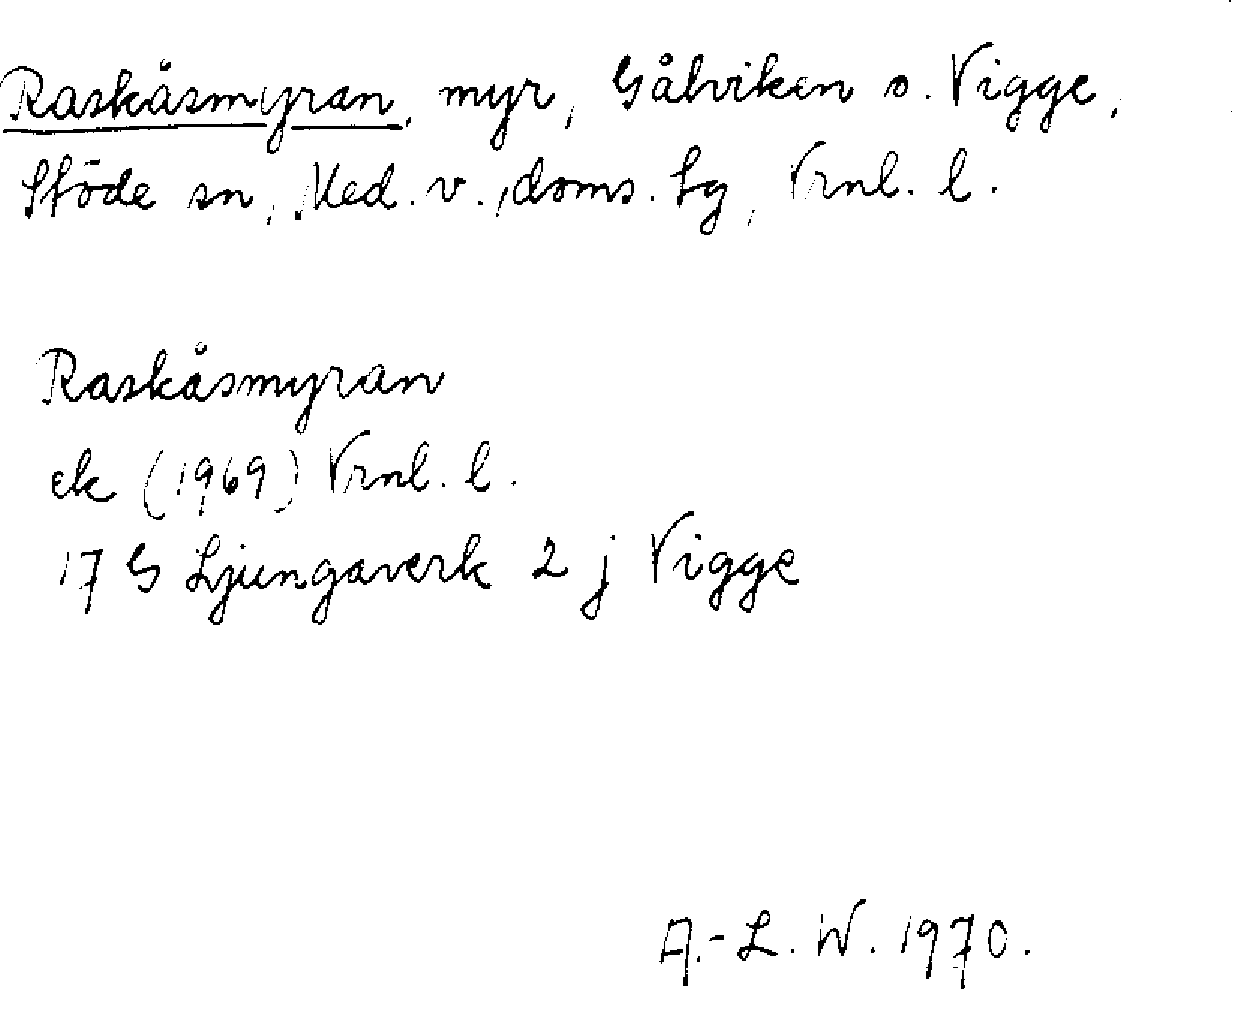 Raskåsmyran, myr, Gålviken o. Vigge,
Stöde sn, Med. v. doms. tg, Vrnl. l.
Raskåsmyran
ek (1969) Vrnl. l.
17 G Ljungaverk 2 j Vigge
A.-L. W. 1970.